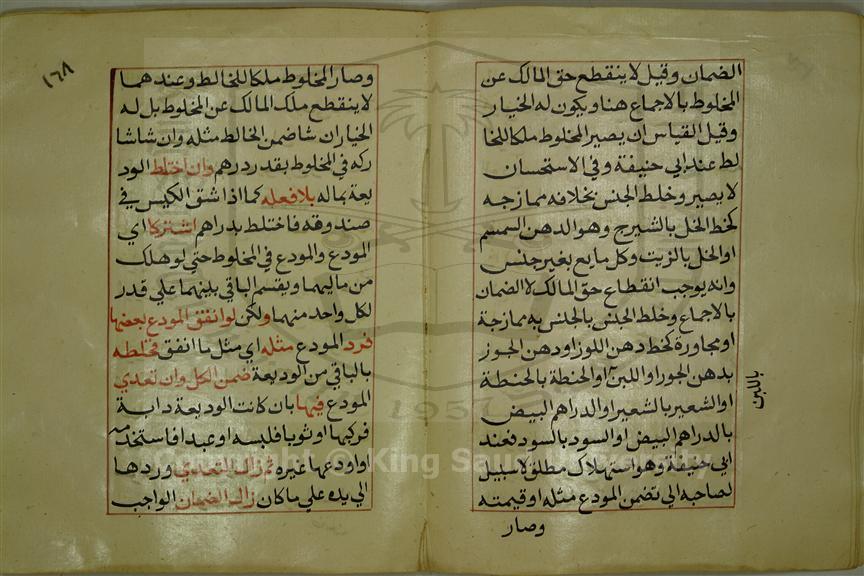 الضمان وقيل لا ينقطع حق المالك عن
المخلوط بالاجماع هنا ويكون له الخيار
وقيل القياس ان يصير المخلوط ملكا للخا
لط عند ابي حنيفة وفي الاستحسان
لا يصير وخلط الجنس بخلافه ممازجه
كخط الخل بالشيرج وهو الدهن السمسم
او الخل بالزيت وكل مايع بغير جنس
وانه يوجب انقطاع حق المالك لا الضمان
بالاجماع وخلط الجنس بالجنس به ممازجة
او مجاورة كخط دهن اللوز او دهن الجوز
بدهن الجور او اللبن او الحنطة بالحنطة
باللبن
او الشعير بالشعير او الدراهم البيض
بالدراهم البيض او السود بالسود فعند
ابي حنيفة وهو استهلاك مطلق لا سبيل
لصاحبه الي تضمن المودع مثله او قيمته
وصار
١٦٨
وصار المخلوط ملكا للخالط وعندهما
لا ينقطع ملك المالك عن المخلوط بل له
الخيار ان شا ضمن الخالط مثله وان شا شا
ركه في المخلوط بقدر درهم وان اختلط الود
يعة بماله بلا فعله كما اذا شق الكيس في
صندوقه فاختلط بدراهم اشتركا اي
المودع والمودع في المخلوط حتي لو هلك
من ماليهما ويقسم الباقي بينهما علي قدر
لكل واحد منهما ولكن لو انفق المودع بعضها
فرد المودع مثله اي مثل ما انفق فخلطه
بالباقي من الوديعة ضمن الكل وان تعدي
المودع فيها بان كانت الوديعة دابة
فركبها او ثوبا فلبسه او عبدا فاستخدمه
او اودعها غيره ثم زال التعدي وردها
الي يده علي ما كان زال الضمان الواجب
Copyright © King Saud University
1957